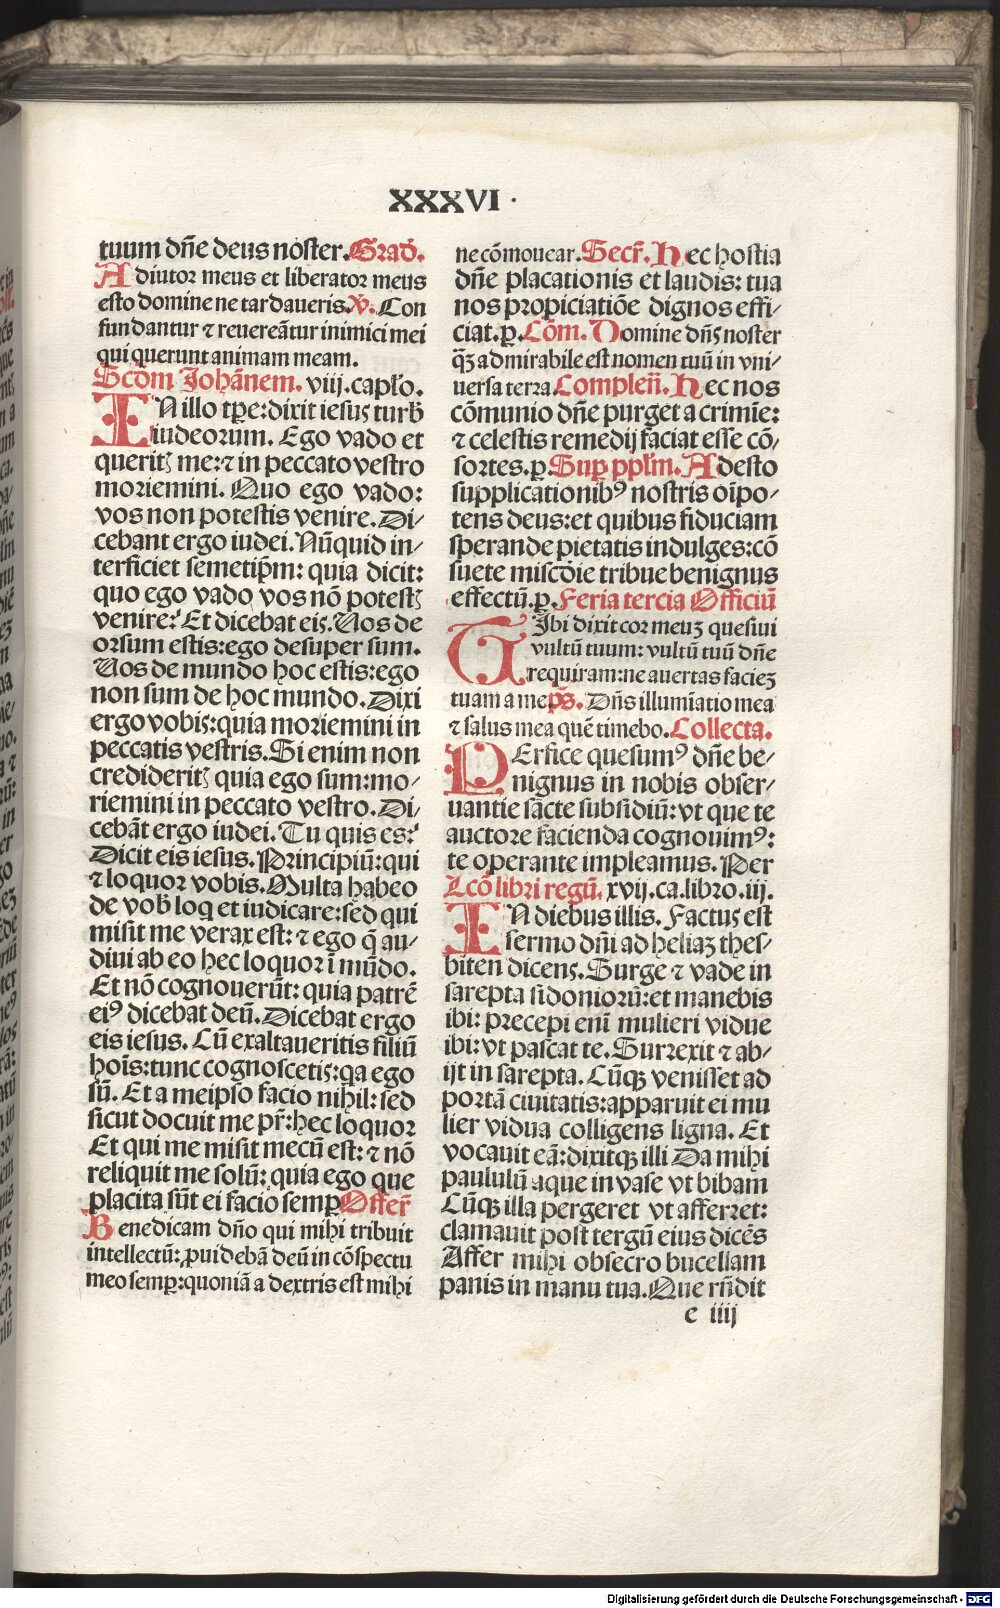 XXXVI ·
tuum dñe deus noster. Grad̃.
Adiutor meus et liberator meus
esto domine ne tardaueris. ℣. Con
fundantur ⁊ reuereãtur inimici mei
qui querunt animam meam.
Scd̃m Johãnem. viij. capło.
IN illo tp̃e: dixit iesus turb̃
iudeorum. Ego vado et
queritꝭ me: ⁊ in peccato vestro
moriemini. Quo ego vado:
vos non potestis venire. Di/
cebant ergo iudei. Nũquid in/
terficiet semetip̃m: quia dicit:
quo ego vado vos nõ potestꝭ
venire? Et dicebat eis. Vos de
orsum estis: ego desuper sum.
Vos de mundo hoc estis: ego
non sum de hoc mundo. Dixi
ergo vobis: quia moriemini in
peccatis vestris. Si enim non
credideritꝭ quia ego sum: mo/
riemini in peccato vestro. Di/
cebãt ergo iudei. Tu quis es?
Dicit eis iesus. Principiũ: qui
⁊ loquor vobis. Multa habeo
de vob̃ loq̃ et iudicare: sed qui
misit me verax est: ⁊ ego q̃ au/
diui ab eo hec loquor ĩ mũdo.
Et nõ cognouerũt: quia patrẽ
eiꝰ dicebat deũ. Dicebat ergo
eis iesus. Cũ exaltaueritis filiũ
hoĩs: tunc cognoscetis: qa ego
sũ. Et a meipso facio nihil: sed
sicut docuit me pr̃: hec loquor
Et qui me misit mecũ est: ⁊ nõ
reliquit me solũ: quia ego que
placita sũt ei facio semꝑ Offer̃
Benedicam dño qui mihi tribuit
intellectũ: ꝓuidebã deũ in cõspectu
meo semꝑ: quoniã a dextris est mihi
ne cõmouear. Secr̃. Hec hostia
dñe placationis et laudis: tua
nos propiciatiõe dignos effi/
ciat. ꝑ. Cõm. Domine dñs noster
q̃ꝫ admirabile est nomen tuũ in vni/
uersa terra. Compleñ. Hec nos
cõmunio dñe purget a crimĩe:
⁊ celestis remedij faciat esse cõ/
sortes. ꝑ. Suꝑ pplm̃. Adesto
supplicationibꝰ nostris oĩpo/
tens deus: et quibus fiduciam
sperande pietatis indulges: cõ
suete misc̃die tribue benignus
effectũ. ꝑ. Feria tercia Officiũ
TIbi dixit cor meuꝫ quesiui
vultũ tuum: vultũ tuũ dñe
requiram: ne auertas facieꝫ
tuam a me. p̃s. Dñs illumĩatio mea
⁊ salus mea quẽ timebo. Collecta.
PErfice quesumꝰ dñe be/
nignus in nobis obser/
uantie sãcte subsidiũ: vt que te
auctore facienda cognouimꝰ:
te operante impleamus. Per
Lcõ libri regũ. xvij. ca. libro. iij.
IN diebus illis. Factus est
sermo dñi ad heliaꝫ thes/
biten dicens. Surge ⁊ vade in
sarepta sidoniorũ: et manebis
ibi: precepi enĩ mulieri vidue
ibi: vt pascat te. Surrexit ⁊ ab/
ijt in sarepta. Cũqꝫ venisset ad
portã ciuitatis: apparuit ei mu
lier vidua colligens ligna. Et
vocauit eã: dixitqꝫ illi Da mihi
paululũ aque in vase vt bibam
Cũqꝫ illa pergeret vt afferret:
clamauit post tergũ eius dicẽs
Affer mihi obsecro bucellam
panis in manu tua. Que rñdit
e iiij
Digitalisierung gefördert durch die Deutsche Forschungsgemeinschaft - DFG